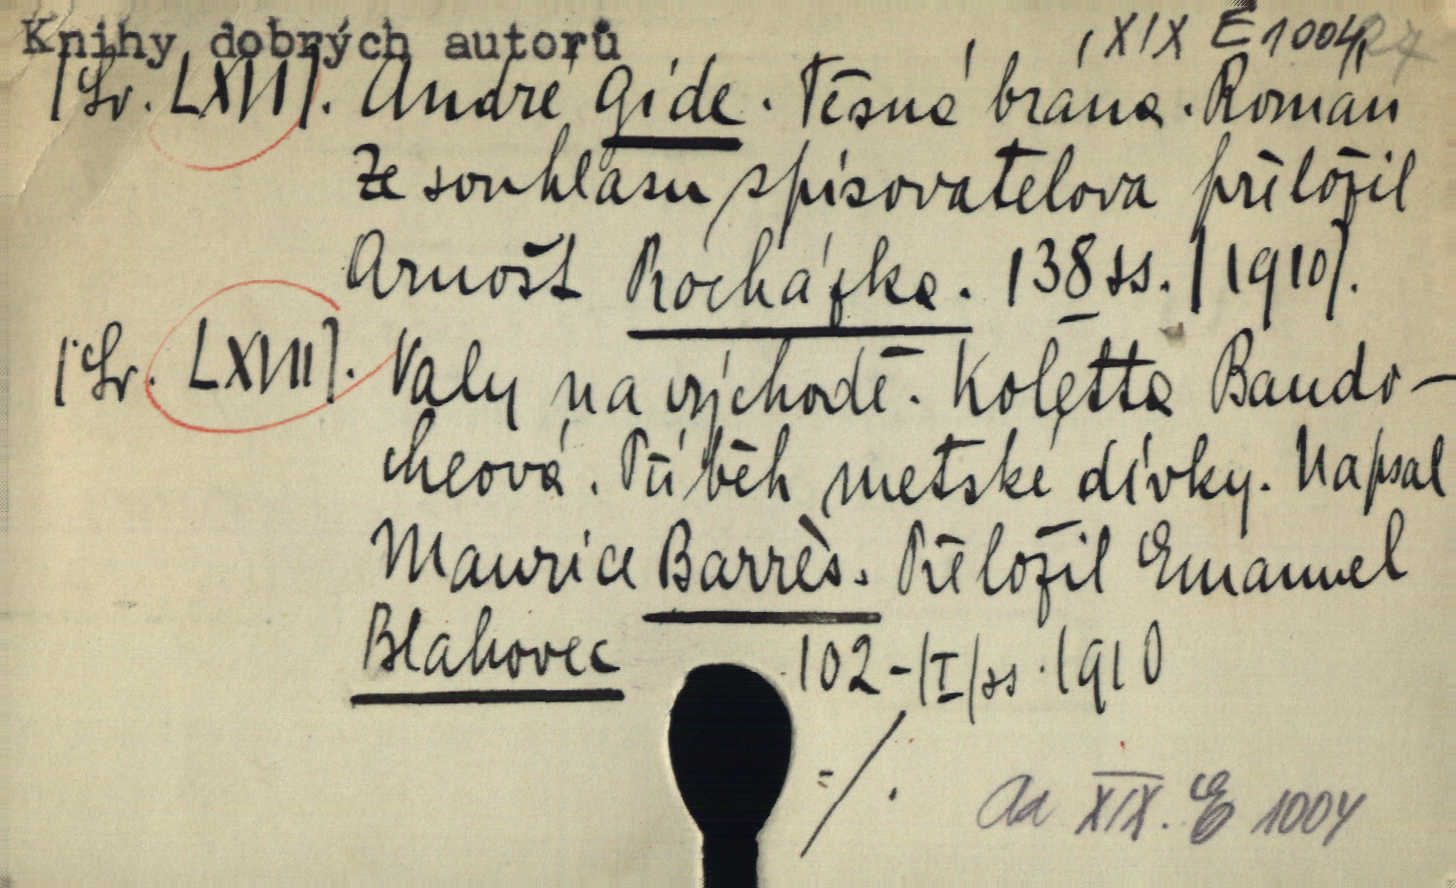 Knihy dobrých autorů XIX E 1004, 27
[Sv. LXVII]. André Gide. Těsná brána. Román
Ze souhlasu spisovatelova přeložil
Arnošt Procházka. 138 ss. [1910].
[Sv. LXVIII]. Valy na východě. Koletta Baudo-
cheová. Příběh metské dívky. Napsal
Maurice Barrès. Přeložil Emanuel
Blahovec 102-[I] ss. 1910
=/.
Ad XIX. E 1004